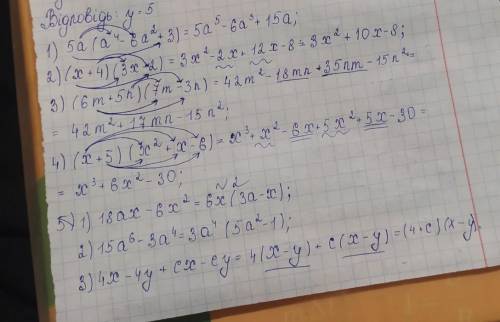 Відповідь: y = 5
1) 5a(a⁴ - 6a² + 3) = 5a⁵ - 6a³ + 15a;
2) (x + 4)(3x - 2) = 3x² - 2x + 12x - 8 = 3x² + 10x - 8;
3) (6m + 5n)(7m - 3n) = 42m² - 18mn + 35nm - 15n² =
= 42m² + 17mn - 15n²;
4) (x + 5)(x² + x - 6) = x³ + x² - 6x + 5x² + 5x - 30 =
= x³ + 6x² - 30;
5) 1) 18ax - 6x² = 6x(3a - x);
2) 15a⁶ - 3a⁴ = 3a⁴(5a² - 1);
3) 4x - 4y + cx - cy = 4(x - y) + c(x - y) = (4 + c)(x - y).